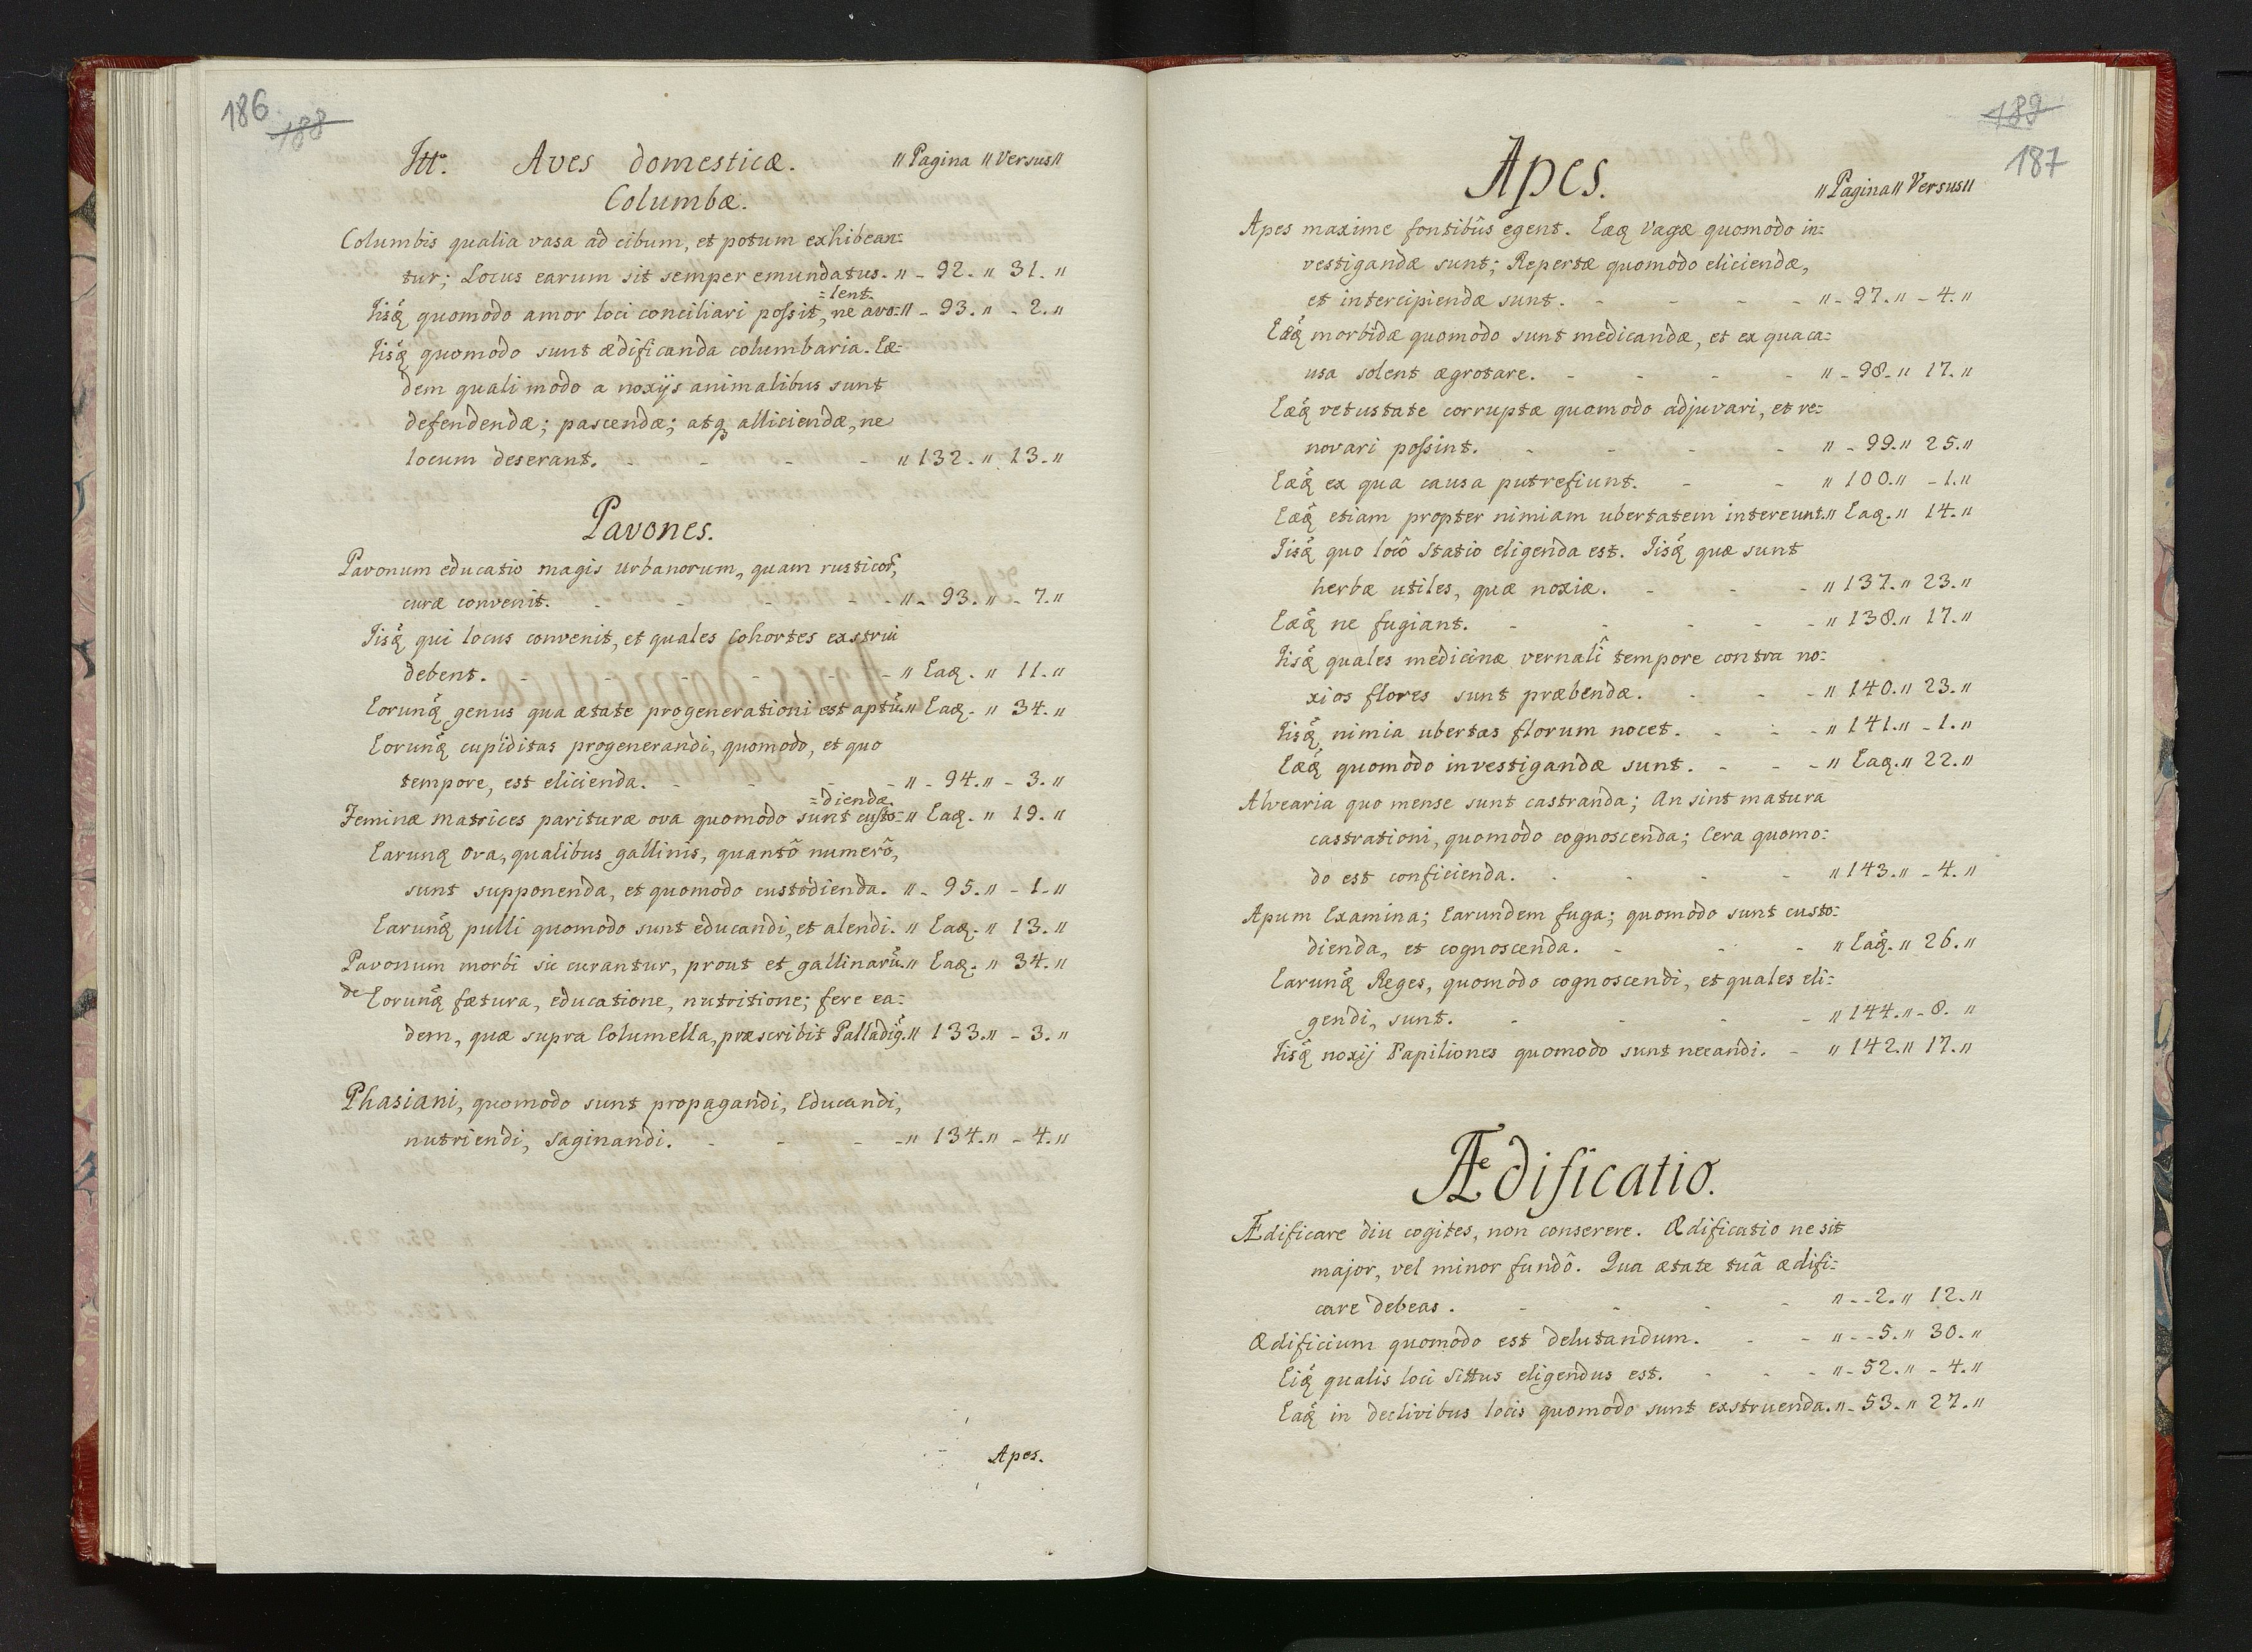 186
188
Itt. Aves domesticæ. " Pagina " Versus "
Columbæ.
Columbis qualia vasa ad cibum, et potum exhibean=
tur; Locus earum sit semper emundatus. " - 92. " 31. "
=lent.
Iisq̃ quomodo amor loci conciliari possit, ne avo= " - 93. " - 2. "
Iisq̃ quomodo sunt ædificanda columbaria. Eæ=
dem quali modo a noxijs animalibus sunt
defendendæ; pascendæ; atq; alliciendæ, ne
locum deserant. - - - - " 132. " 13. "
Pavones.
Pavonum educatio magis Urbanorum, quam rusticor̃,
curæ convenit. - - - - - " - 93. " - 7. "
Iisq̃ qui locus convenit, et quales Cohortes exstrui
debent. - - - - - - " Eaq. " 11. "
Eorunq̃ genus qua ætate progenerationi est aptũ. " Eaq. " 34. "
Eorunq̃ cupiditas progenerandi, quomodo, et quo
tempore, est elicienda. - - - - " - 94. " - 3. "
=diendæ.
Feminæ matrices parituræ ova quomodo sunt custo= " Eaq. " 19. "
Earunq ova, qualibus gallinis, quantô numerô,
sunt supponenda, et quomodo custodienda. " - 95. " - 1. "
Earunq̃ pulli quomodo sunt educandi, et alendi. " Eaq. " 13. "
Pavonum morbi sic curantur, prout et gallinarũ. " Eaq. " 34. "
de Eorunq̃ fætura, educatione, nutritione; fere ea=
dem, quæ supra Columella, præscribit Palladig̃. " 133. " - 3. "
Phasiani, quomodo sunt propagandi, Educandi,
nutriendi, saginandi. - - - - " 134. " - 4. "
Apes.
189
187
Apes.
" Pagina " Versus "
Apes maxime fontibûs egent. Eæq vagæ quomodo in=
vestigandæ sunt; Repertæ quomodo eliciendæ,
et intercipiendæ sunt. - - - - " - 97. " - 4. "
Eæq̃ morbidæ quomodo sunt medicandæ, et ex qua ca=
usa solent ægrotare. - - - - " - 98. " 17. "
Eæq̃ vetustate corruptæ quomodo adjuvari, et re=
novari possint. - - - - " - 99. " 25. "
Eæq̃ ex qua causa putrefiunt. - - " 100. " - 1. "
Eæq̃ etiam propter nimiam ubertatem intereunt. " Eaq. " 14. "
Iisq̃ quo locô statio eligenda est. Iisq̃ quæ sunt
herbæ utiles, quæ noxiæ. - - - " 137. " 23. "
Eæq̃ ne fugiant. - - - - - " 138. " 17. "
Iisq̃ quales medicinæ vernalî tempore contra no=
xios flores sunt præbendæ. - - - " 140. " 23. "
Iisq̃ nimia ubertas florum nocet. - - - " 141. " - 1. "
Eæq̃ quomodo investigandæ sunt. - - - " Eaq. " 22. "
Alvearia quo mense sunt castranda; An sint matura
castrationi, quomodo cognoscenda; Cera quomo=
do est conficienda. - - - - " 143. " - 4. "
Apum Examina; Earundem fuga; quomodo sunt custo=
dienda, et cognoscenda. - - - " Eaq̃. " 26. "
Earunq̃ Reges, quomodo cognoscendi, et quales eli=
gendi, sunt. - - - - " 144. " - 8. "
Iisq̃ noxij Papiliones quomodo sunt necandi. - " 142. " 17. "
Ædificatio.
Ædificare diu cogites, non conserere. Ædificatio ne sit
major, vel minor fundô. Qua ætate tuâ ædifi=
care debeas. - - - - " - - 2. " 12. "
Ædificium quomodo est delutandum. - - " - - 5. " 30. "
Eiq̃ qualis loci sittus eligendus est. - - - " - 52. " - 4. "
Eaq̃ in declivibus locis quomodo sunt exstruenda. " - 53. " 27. "